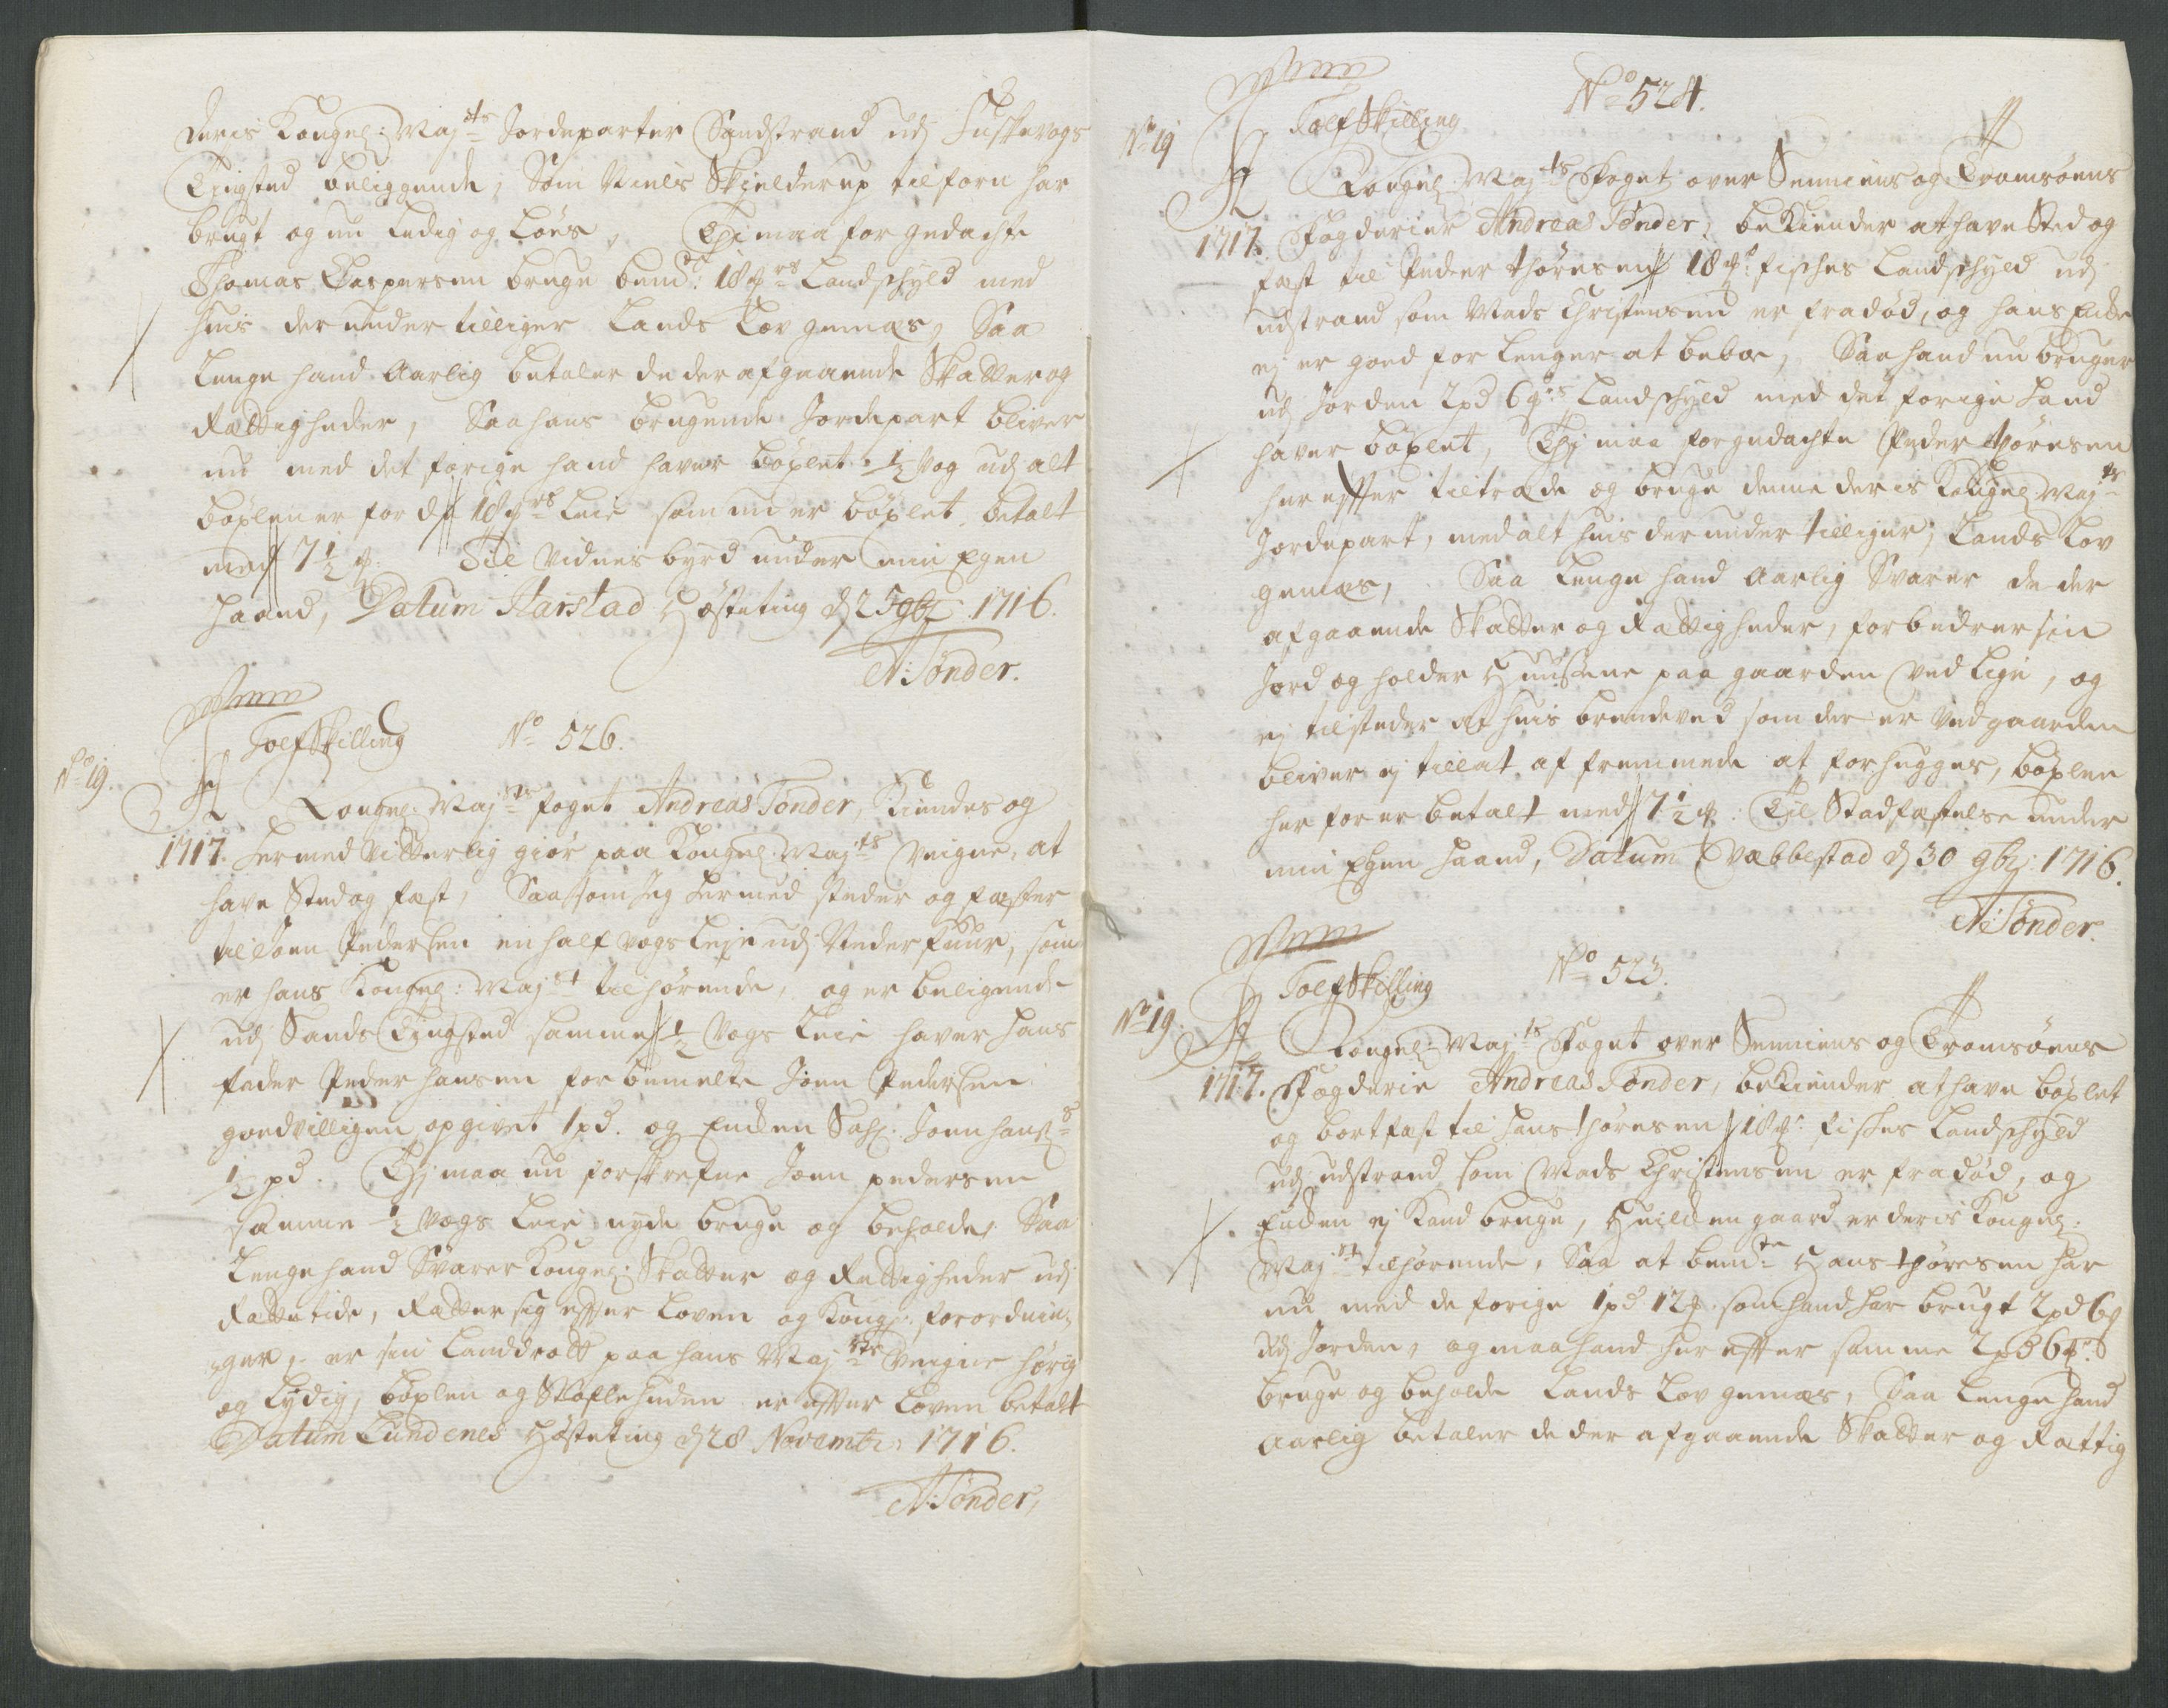 deris Kongel: Maj:ts Jordeparter Sandstrand udj
Tingsted beliggende, Som Niels Skjelderup tilforn har
brugt og nu Ledig og Löes, Thi maa for gedachte
Thomas Caspersen bruge bem:te 18 Landschyld med
huis der under tilliger Lands Lov gemæs, Saa
Lenge hand Aarlig betaler de der afgaaende Skatter og
Rættigheder, Saa hans brugende Jordepart bliver
nu med det forige hand haver böxlet 1/2 vog udj alt
böxlen er for d 18 Leie som nu er böxlet, betalt
med 7 1/2 Til Vidnesbyrd under min Egen
Haand, Datum Harstad Hösteting d 25 9br 1716.
A: Tönder.
Tolf Skilling No 526.
No 19.
Kongel: Maj:ts foget Andreas Tönder, Kiendes og
1717. Hermed Vitterlig giör paa Kongel: Maj:ts Veigne, at
have Sted og fæst, Saa som Jeg Hermed steder og fæster
til Joen Pedersen en half vogs Leje udj Neder, som
er hans Kongel: Maj:st tilhörende, og er beligende
udj Sands Tingsted samme 1/2 Vogs Leie haver hans
fader Peder Hansen for bemelte Joen Pedersen
goedvilligen opgivet 1 pd. og Encken Sal: Joen Hans:
1/2 pd. Thj maa nu forskrefne Joen pedersen
samme 1/2 Vogs Leie nyde bruge og beholde, Saa
Lenge hand Svarer Kongel: Skatter og Rettigheder udj
Rætte tide, Retter sig efter Loven og Kong: forordnin-
ger, er sin Landdrott paa hans Maj:ts Veigne hörig
og Lydig, böxlen og er efter Loven betalt
Datum Lundenes Hösteting d 28 Novembr: 1716.
A: Tönder,
No 524.
Tolf Skilling
No 19
Kongel: Maj:ts Foget over Senniens og Tromsöens
1717. Fogderier Andreas Tönder, beKiender at have Sted og
fæst til Peder Thöresen 18 fisches Landschyld udj
udstrand som Mads Christensen er fradöd, og hans Encke
ej er goed for Lenger at beboe, Saa hand nu bruger
udj Jorden 2 pd 6 Landschyld med det forige Hand
haver böxlet, Thj maa forgedachte Peder Thöresen
her effter tiltræde og bruge denne deris Kongel: Maj:ts
Jordepart, med alt huis der under tilliger, Lands Lov
gemæs, Saa Lenge hand Aarlig Svarer de der
afgaaende Skatter og Rættigheder, forbedrer sin
Jord og holder Huusene paa gaarden ved Lige, og
ej tilsteder at huis brendeved som der er ved gaarden
bliver ej tillat af fremmede at forhugges, böxlen
her for er betalt med 7 1/2 Til Stadfæstelse under
min Egen Haand, Datum d 30 9br: 1716.
A: Tönder.
No 523.
Tolf Skilling
No 19.
Kongel: Maj:ts Foget over Senniens og Tromsöens
1717. Fogderie Andreas Tönder, beKiender at have böxlet
og bortfæst til Hans Thöresen 18 fisches Landschyld
udj udstrand som Mads Christensen er fradöd, og
Encken ej Kand bruge, Huilcken gaard er deris Kongel:
Maj:st tilhörende, Saa at bem:te Hans Thöresen har
nu med de forige 1 pd 12 som hand har brugt 2 pd 6
udj Jorden, og maa hand her effter samme 2 pd 6
bruge og beholde Lands Lov gemæs, Saa Lenge hand
Aarlig betaler de der afgaaende Skatter og Rættig